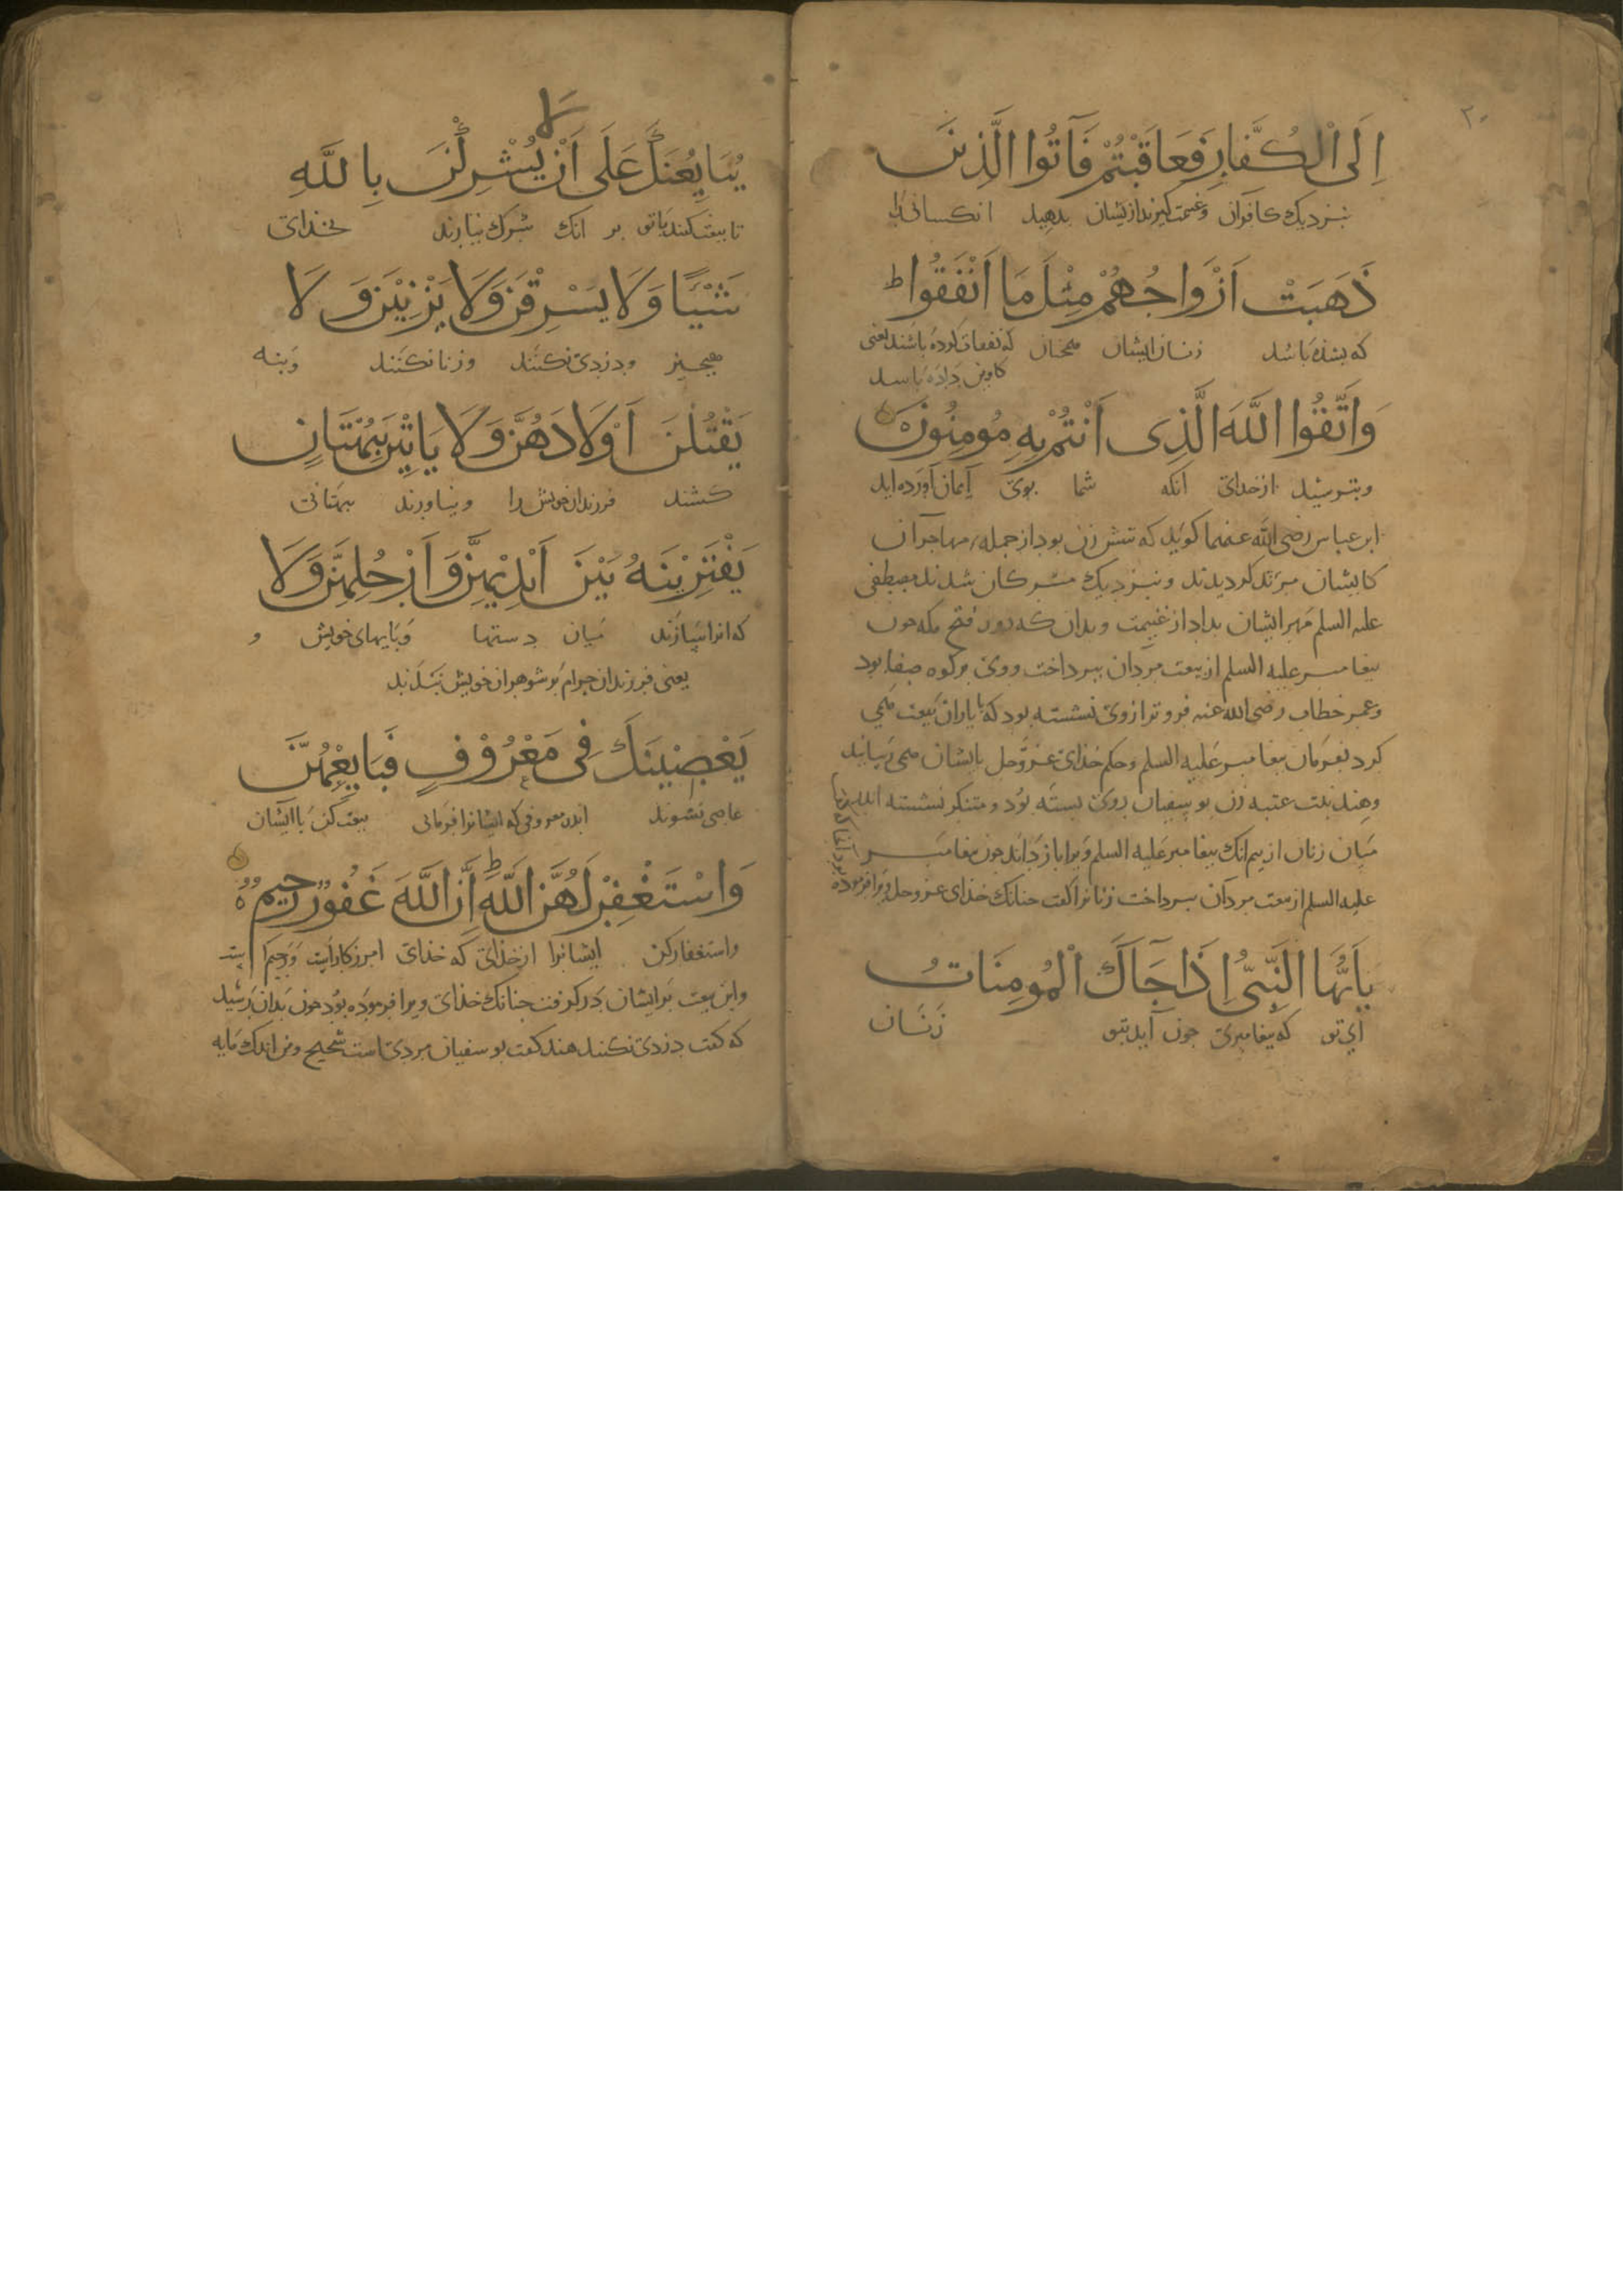 ۲۰
اِلَى الْكُفَّارِ فَعَاقَبْتُمْ فَآتُوا الَّذِينَ
بنزدیک کافران وغنیمت گیرند ازیشان بدهید انکسانی را
ذَهَبَتْ اَزْوَاجُهُمْ مِثْلَ مَا اَنْفَقُوا ط
که بشده باشد زنان ایشان همچنان که نفقات کرده باشند یعنی
کاوین داده باشد
وَاتَّقُوا اللَّهَ الَّذِى اَنْتُمْ بِهِ مُومِنُونَ
وبترسید ازخدای آنکه شما بوی ایمان آورده اید
ابن عباس رضی الله عنهما کوید که شش زن بود از جمله مهاجران
کایشان مرتد کردیدند و بنزدیک مشرکان شدند مصطفی
علیه السلم مهر ایشان بداد از غنیمت وبدان که روز فتح مکه جون
بیغامبر علیه السلم از بیعت مردان ببرداخت ووی برکوه صفا بود
وعمر خطاب رضی الله عنه فروتر ازوی نشسته بود که با یاران بیعت همی
کرد بفرمان بیغامبر علیه السلم وحکم خدای عز وجل بایشان همی رسانید
وهند بنت عتبه زن بو سفیان روی بسته بود و متنکر نشسته اندر
میان زنان از بیم انک بیغامبر علیه السلم ویرا باز داند جون بیغامبر
علیه السلم از بیعت مردان ببرداخت زنانرا کفت جنانک خدای عز وجل ویرا فرموده
یاَیُّهَا النَّبِیُّ اِذَا جَاَكَ الْمُومِنَاتُ
ای تو که بیغامبری جون آید بتو زنان
لا
یُبَایِعْنَكَ عَلَى اَنْ لا یُشْرِكْنَ بِاللَّهِ
تا بیعت کنند باتو بر انک شرک نیارند بخدای
شَیْئًا وَلَا یَسْرِقْنَ وَلَا یَزْنِیْنَ وَلَا
هیچیز ودزدی نکنند وزنا نکنند وبنه
یَقْتُلْنَ اَوْلَادَهُنَّ وَلَا یَاتِیْنَ بِبُهْتَانٍ
کشند فرزندان خویش را ونیاورند بهتانی
یَفْتَرِیْنَهُ بَیْنَ اَیْدِیْهِنَّ وَاَرْجُلِهِنَّ وَلَا
که انرا بسازند میان دستها وبایهای خویش و
یعنی فرزندان حرام بر شوهران خویش نبندند
یَعْصِیْنَكَ فِى مَعْرُوْفٍ فَبَایِعْهُنَّ
عاصی نشوند اندر معروفی که ایشانرا فرمائی بیعت کن باایشان
وَاسْتَغْفِرْ لَهُنَّ اللَّهَ ط اِنَّ اللَّهَ غَفُورٌ رَحِیمٌ
واستغفار کن ایشانرا ازخدای که خدای امرزکارست ورحیم است
واین بیعت برایشان درکرفت جنانک خدای ویرا فرموده بود جون بدان رسید
که کفت دزدی نکنند هند کفت بو سفیان مردی است شحیح ومن اندک مایه